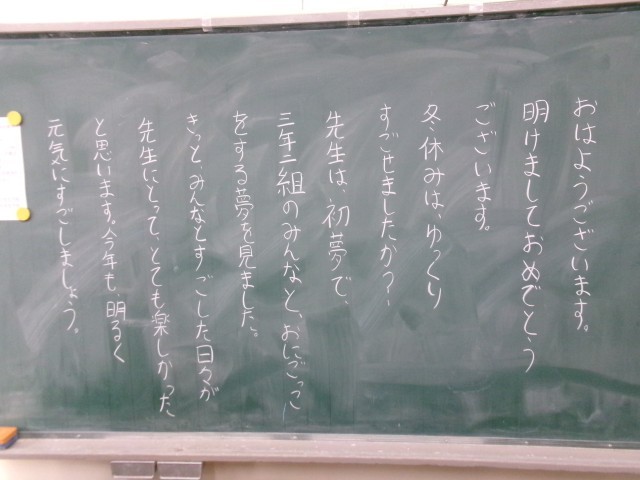 おはようございます。
明けましておめでとう
ございます。
冬休みは、ゆっくり
すごせましたか？
先生は、初夢で、
三年二組のみんなと、おにごっこ
をする夢を見ました。
きっと、みんなとすごした日々が
先生にとって、とても楽しかった
と思います。今年も、明るく
元気にすごしましょう。